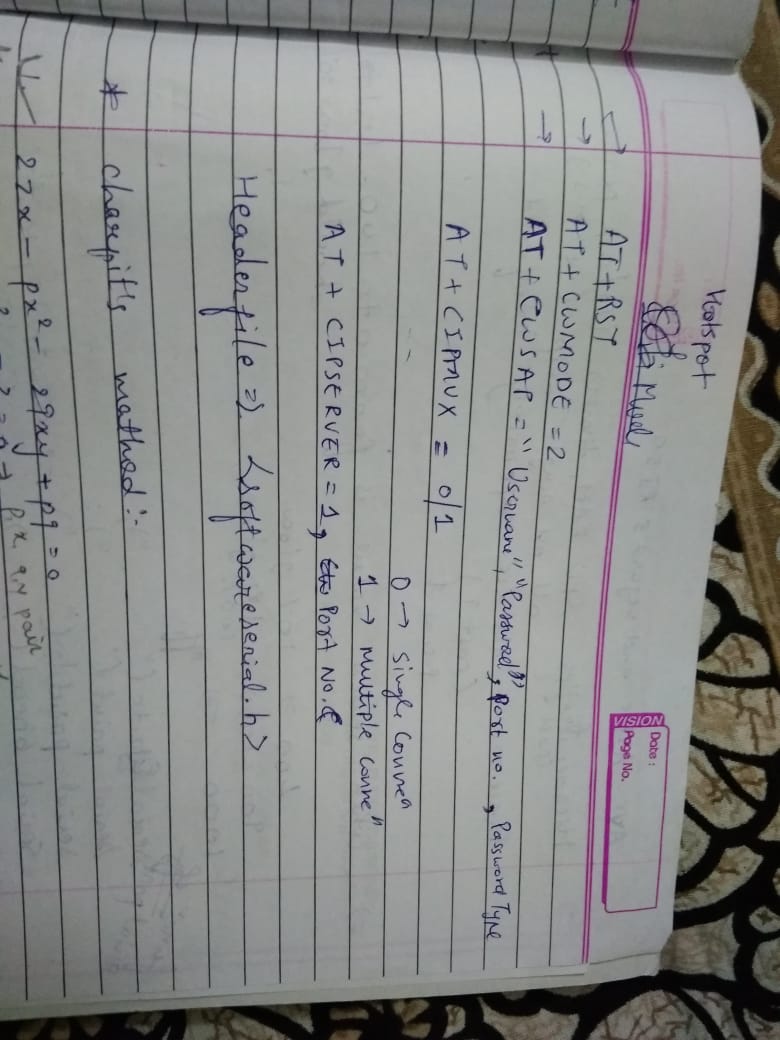 VISION
Date :
Page No.
Hotspot
Mode
→ AT+RST
→ AT+CWMODE = 2
→ AT+CWSAP = "Username", "Password", Port no., Password Type
AT+CIPMUX = 0/1
0 → Single Connen
1 → Multiple Conne"
AT + CIPSERVER = 1, Port No.
Header file => <softwareserial.h>
* charpit's method :-
2zx - px² - 2qxy + pq = 0
pair